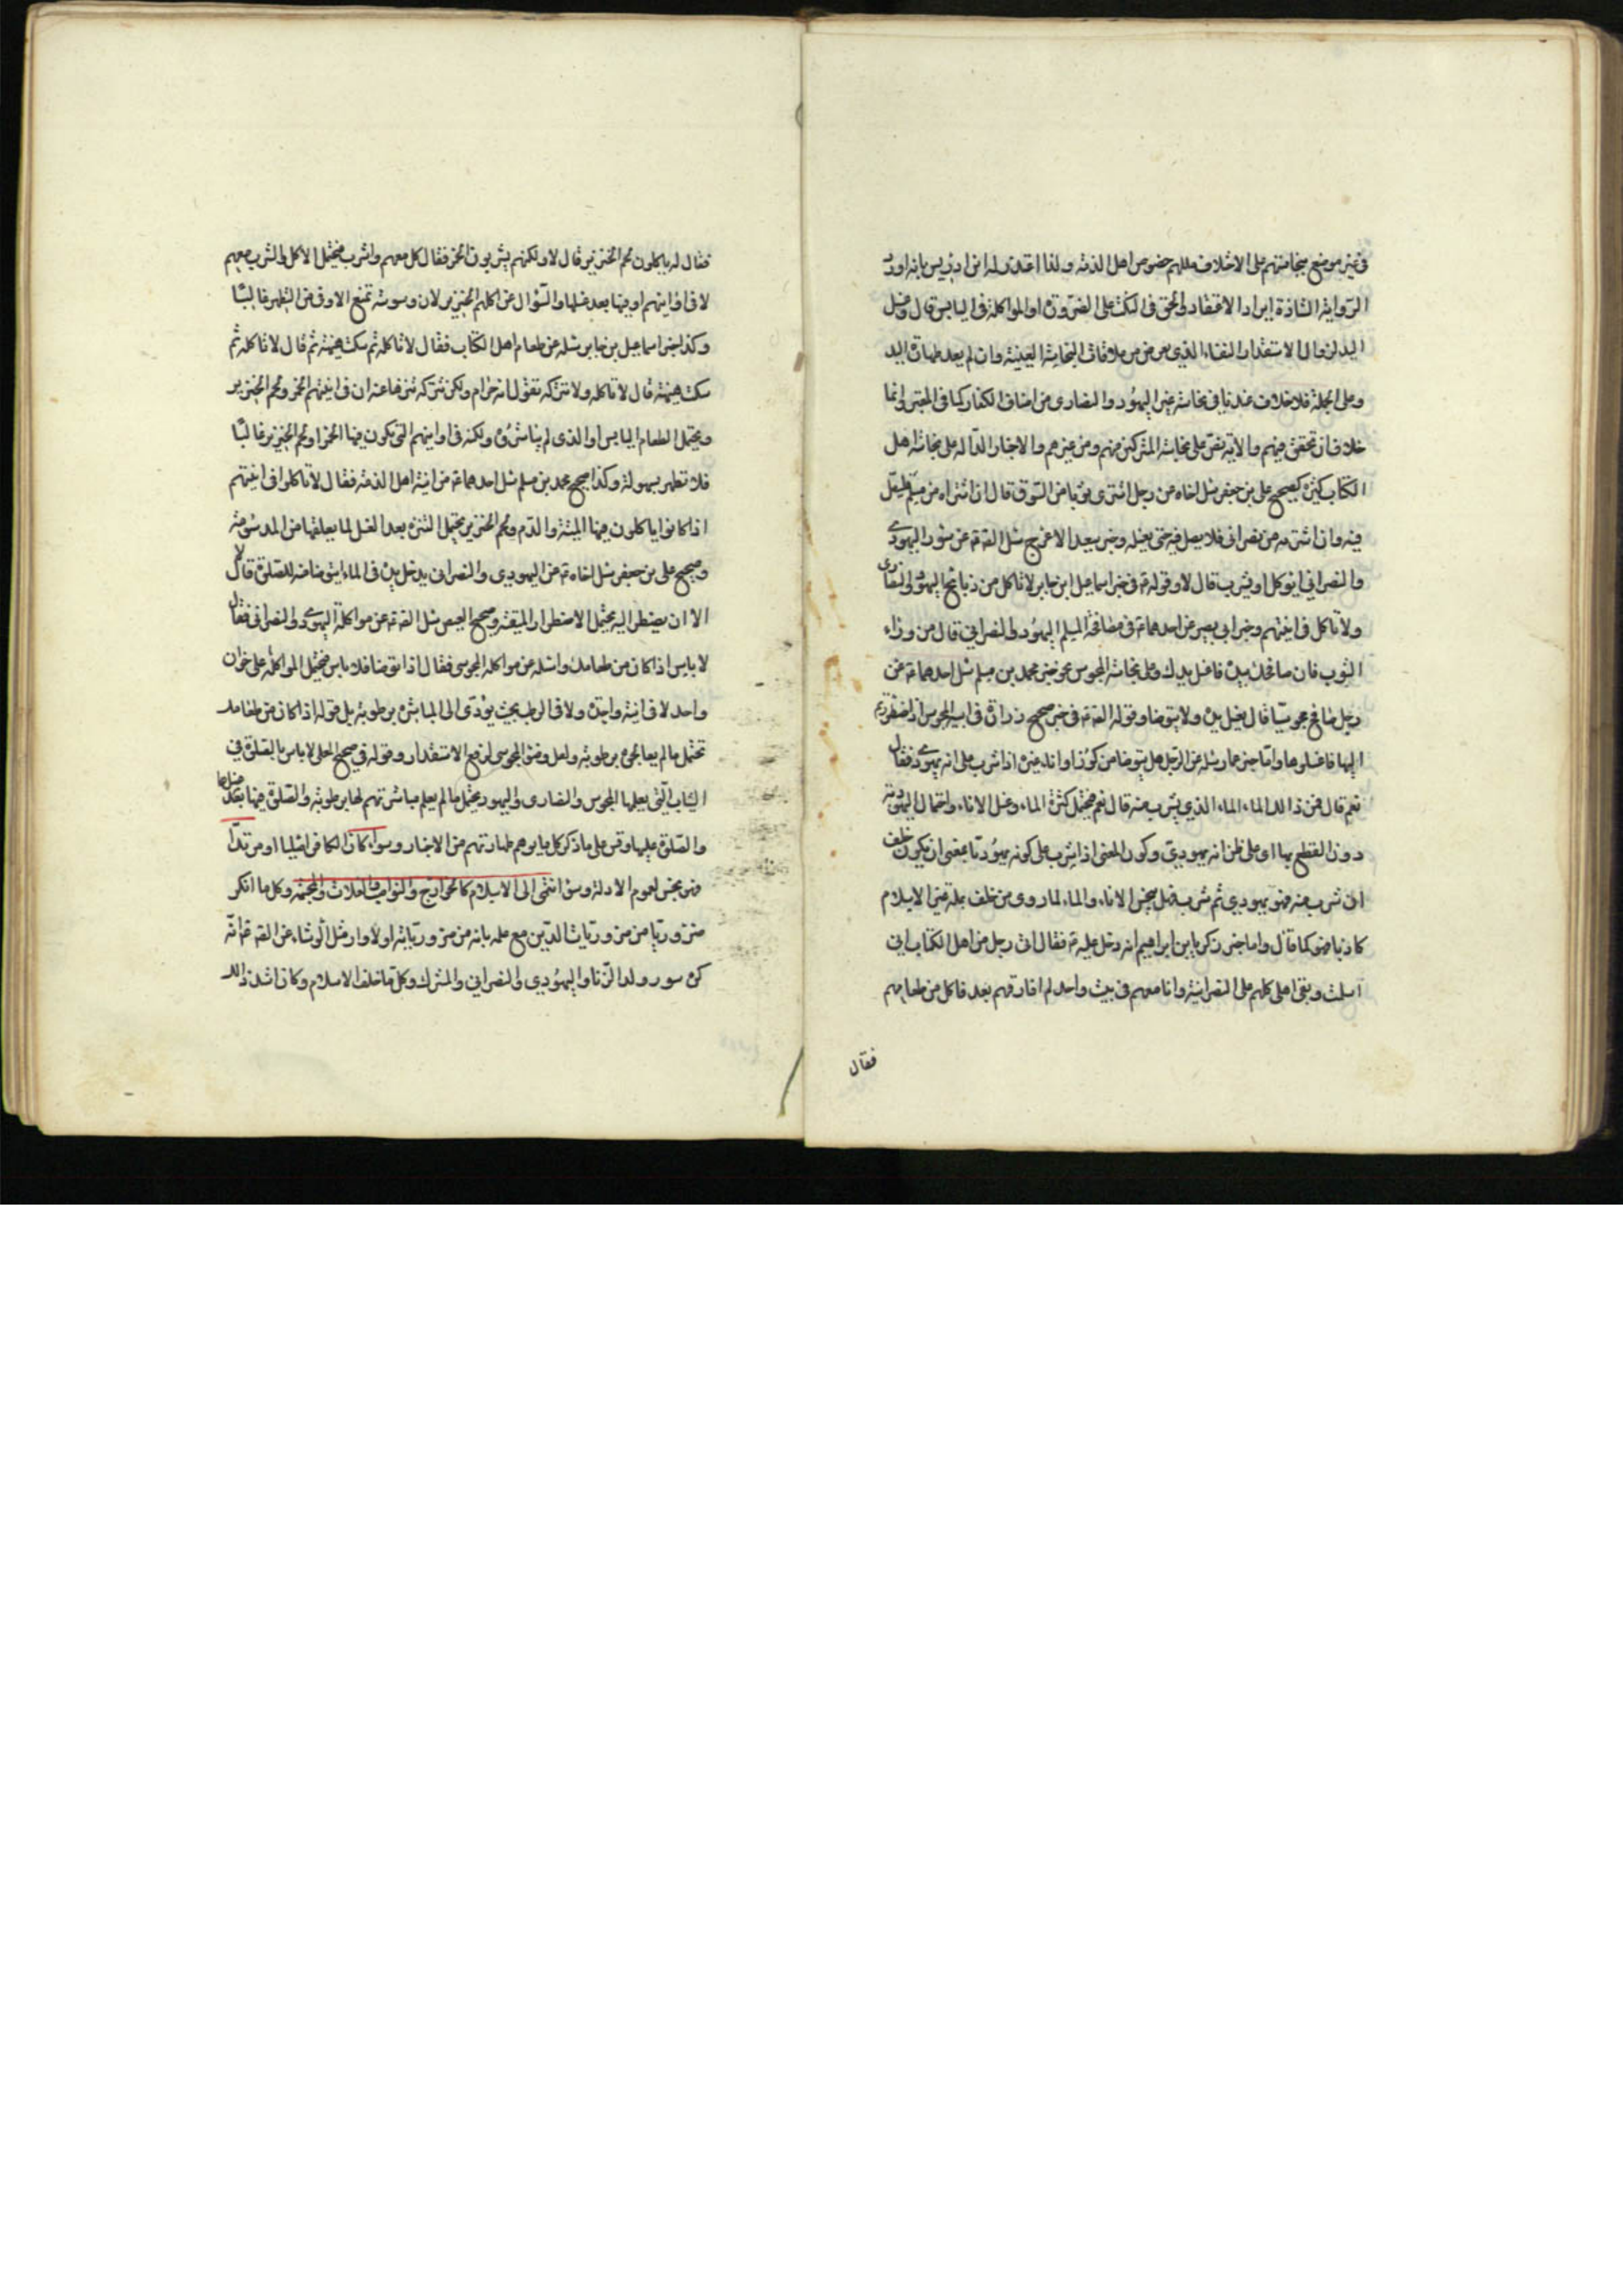 فى غير موضع بنجاستهم على اختلاف مللهم خصوص اهل الذمة ولذا اعتذر له ابن ادريس بانه اورد
الرواية الشاذة ايرادا لا اعتقادا والمحقق فى النكت على الضرورة او المواكلة فى اليابس قال وغسل
اليد لزوال الاستقذار النفسانى الذى يعرض من ملاقات النجاسة العينية وان لم يفد طهارة اليد
وعلى الجملة فلا خلاف عندنا فى نجاسة غير اليهود والنصارى من اصناف الكفار كما فى المعتبر وانما
خلاف ان تحقق فيهم والاية نص على نجاسة المشركين منهم ومن غيرهم والاخبار الدالة على نجاسة اهل
الكتاب كثيرة كصحيح على بن جعفر سئل اخاه عن رجل اشترى ثوبا من السوق قال ان اشتراه من مسلم فليصل
فيه وان اشتريه من نصرانى فلا يصل فيه حتى يغسله وخبر سعيد الاعرج سئل الصادق عن سور اليهودى
والنصرانى ايؤكل او يشرب قال لا وقوله فى خبر اسماعيل ابن جابر لا تاكل من ذبايح اليهود والنصارى
ولا تاكل فى انيتهم وخبر ابى بصير عن احدهما فى مصافحة المسلم اليهود والنصرانى قال من وراء
الثوب فان صافحك بيده فاغسل يدك وعلى نجاسة المجوس نحو خبر محمد بن مسلم سئل احدهما عن
رجل صافح مجوسيا قال يغسل يده ولا يتوضا وقوله فى خبر صحيح زرارة فى انية المجوس اذا اضطررتم
اليها فاغسلوها واما خبر عمار سئله عن الرجل هل يتوضا من كوز او اناء غيره اذا شرب على انه يهودى فقال
نعم قال فمن ذالك الماء الذى يشرب منه قال نعم فيحتمل كثرة الماء وغسل الاناء واحتمال اليهودية
دون القطع بها اى على ظن انه يهودى وكون المعنى اذا شرب على كونه يهوديا بمعنى ان يكون خلف
ان شرب منه فهو يهودى ثم شرب فهل ينجس الاناء والماء لما روى من خلف بملة غير الاسلام
كاذبا فهو كما قال واما خبر زكريا بن ابراهيم انه دخل عليه فقال انى رجل من اهل الكتاب انى
اسلمت وبقى اهلى كلهم على النصرانية وانا معهم فى بيت واحد لم افارقهم بعد فاكل من طعامهم
فقال
فقال له ياكلون لحم الخنزير قال لا ولكنهم يشربون الخمر فقال كل معهم واشرب فيحتمل الاكل والشرب معهم
لا فى اوانيهم او فيها بعد غسلها والسؤال عن اكلهم الخنزير لان دسومته تمنع الاوانى من التطهر غالبا
وكذا خبر اسماعيل بن جابر سئله عن طعام اهل الكتاب فقال لا تاكله ثم سكت هنيئة ثم قال لا تاكله ثم
سكت هنيئة قال لا تاكله ولا تتركه تقول انه حرام ولكن تتركه تنزها عنه ان فى انيتهم الخمر ولحم الخنزير
ويحتمل الطعام اليابس او الذى لم يباشروه ولكنه فى اوانيهم التى يكون فيها الخمر او لحم الخنزير غالبا
فلا تطهر بسهولة وكذا صحيح محمد بن مسلم سئل احدهما عن انية اهل الذمة فقال لا تاكلوا فى انيتهم
اذا كانوا ياكلون فيها الميتة والدم ولحم الخنزير يحتمل التنزه بعد الغسل لما يعلقها من الدسومة
وصحيح على بن جعفر سئل اخاه عن اليهودى والنصرانى يدخل يده فى الماء ايتوضا منه للصلوة قال لا
الا ان يضطر اليه يحتمل الاضطرار والتقية وصحيح العيص سئل الصادق عن مواكلة اليهودى والنصرانى فقال
لا باس اذا كان من طعامك واسئله عن مواكلة المجوسى فقال اذا توضا فلا باس فيحتمل المواكلة على خوان
واحد لا فى انية واحدة ولا فى الرطب بحيث يؤدى الى المباشرة برطوبة بل قوله اذا كان من طعامك
تحتمل ما لم يعالجوه برطوبة ولعل وضؤ المجوسى لرفع الاستقذار وقوله فى صحيح الحلبى لا باس بالصلوة فى
الثياب التى يعملها المجوس والنصارى واليهود يحتمل ما لم يعلم مباشرتهم لها برطوبة والصلوة فيها بعد غسلها
والصلوة عليها وقس على ما ذكر كل ما يوهم طهارتهم من الاخبار وسواء كان الكافر اصليا او مرتدا
فهو نجس لعموم الادلة وسواء انتمى الى الاسلام كالخوارج والنواصب والغلاة والمجسمة وكل ما انكر
ضروريا من ضروريات الدين مع علمه بانه من ضرورياته او لا وارسل الوشاء عن الصادق انه
كره سور ولد الزنا واليهودى والنصرانى والمشرك وكل ما خالف الاسلام وكان اشد ذالك